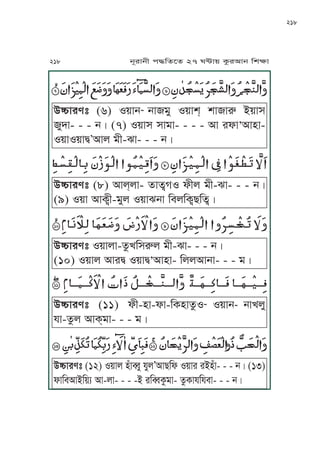 ২১৮
২১৮ নূরানী পদ্ধতিতে ২৭ ঘন্টায় কুরআন শিক্ষা
وَّالنَّجْمُ وَالشَّجَرُ يَسْجُدٰنِ ۝ وَالسَّمَآءَ رَفَعَهَا وَوَضَعَ الْمِيْزَانَ ۝
উচ্চারণঃ (৬) ওয়ান- নাজমু ওয়াশ্ শাজারু ইয়াস
জুদা- - - ন। (৭) ওয়াস সামা- - - - আ রফা'আহা-
ওয়াওয়াদ্বা'আল মী-ঝা- - - ন।
اَلَّا تَطْغَوْا فِى الْمِيْزَانِ ۝ وَاَقِيْمُوا الْوَزْنَ بِالْقِسْطِ
উচ্চারণঃ (৮) আল্লা- তাত্বগও ফীল মী-ঝা- - - ন।
(৯) ওয়া আক্বী-মুল ওয়াঝনা বিলক্বিছত্বি।
وَلَا تُخْسِرُوا الْمِيْزَانَ ۝ وَالْاَرْضَ وَضَعَهَا لِلْاَنَامِ ۝
উচ্চারণঃ ওয়ালা-তুখসিরুল মী-ঝা- - - ন।
(১০) ওয়াল আরদ্ব ওয়াদ্বা'আহা- লিলআনা- - - ম।
فِيْهَا فَاكِهَةٌ وَّالنَّخْلُ ذَاتُ الْاَكْمَامِ ۝
উচ্চারণঃ (১১) ফী-হা-ফা-কিহাতুও- ওয়ান- নাখলু
যা-তুল আক্মা- - - ম।
وَالْحَبُّ ذُو الْعَصْفِ وَالرَّيْحَانُ ۝ فَبِاَيِّ اٰلَآءِ رَبِّكُمَا تُكَذِّبٰنِ ۝
উচ্চারণঃ (১২) ওয়াল হাব্বু যুল'আছফি ওয়ার রইহা- - - ন। (১৩)
ফাবিআইয়্যি আ-লা- - - -ই রব্বিকুমা- তুকাযযিবা- - - ন।